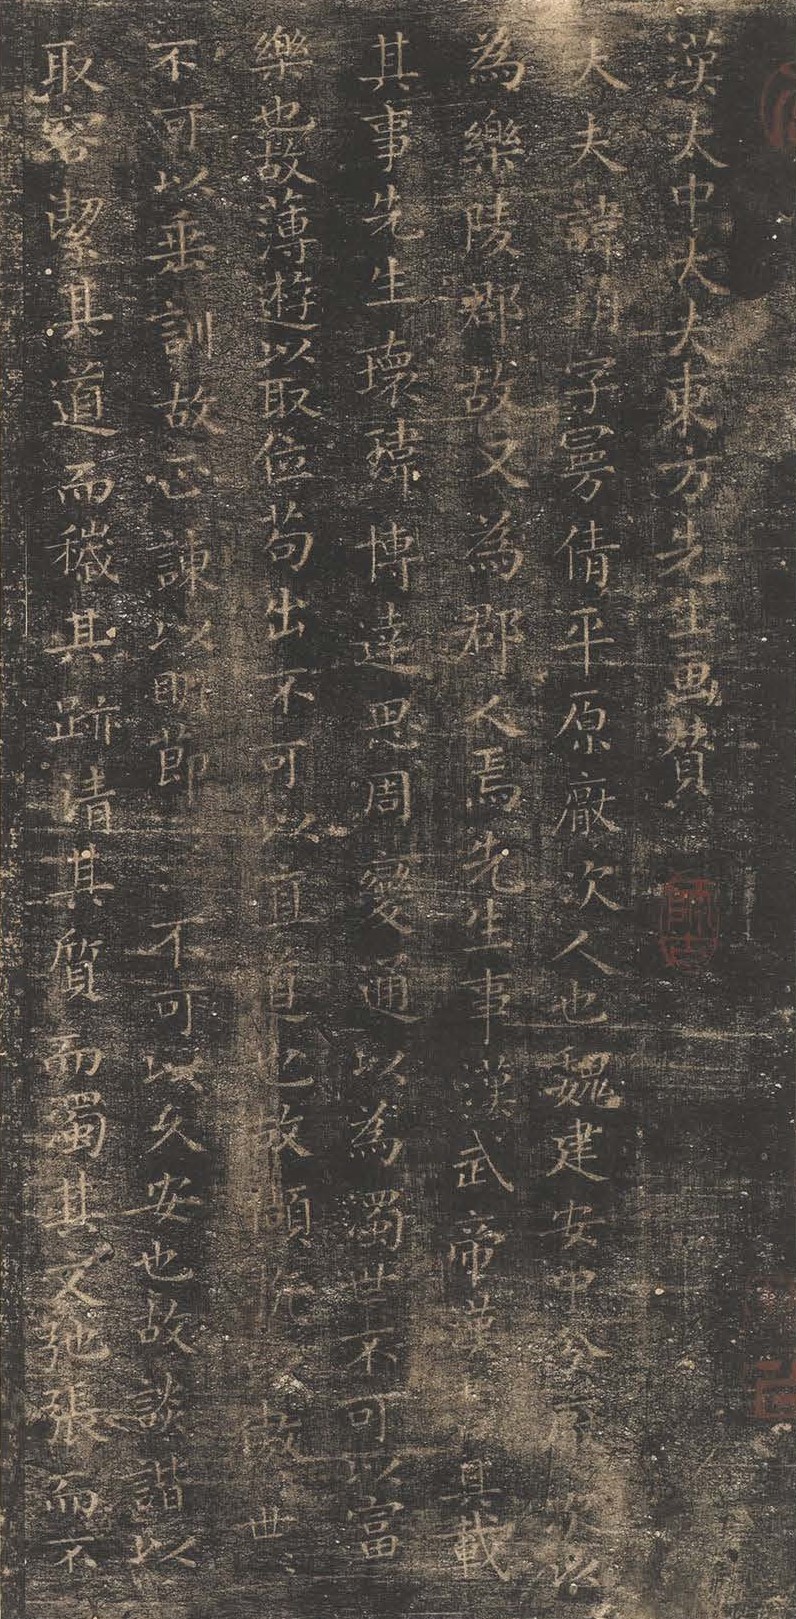 漢太中大夫東方先生画賛
大夫諱朔字曼倩平原厭次人也魏建安中分厭次以
為樂陵郡故又為郡人焉先生事漢武帝漢具載
其事先生瓌瑋博達思周變通以為濁世不可以富
樂也故薄遊以取位苟出不可以直道也故頡以傲世
不可以垂訓故正諫以明節不可以久安也故談諧以
取容潔其道而穢其跡清其質而濁其文弛張而不
師古